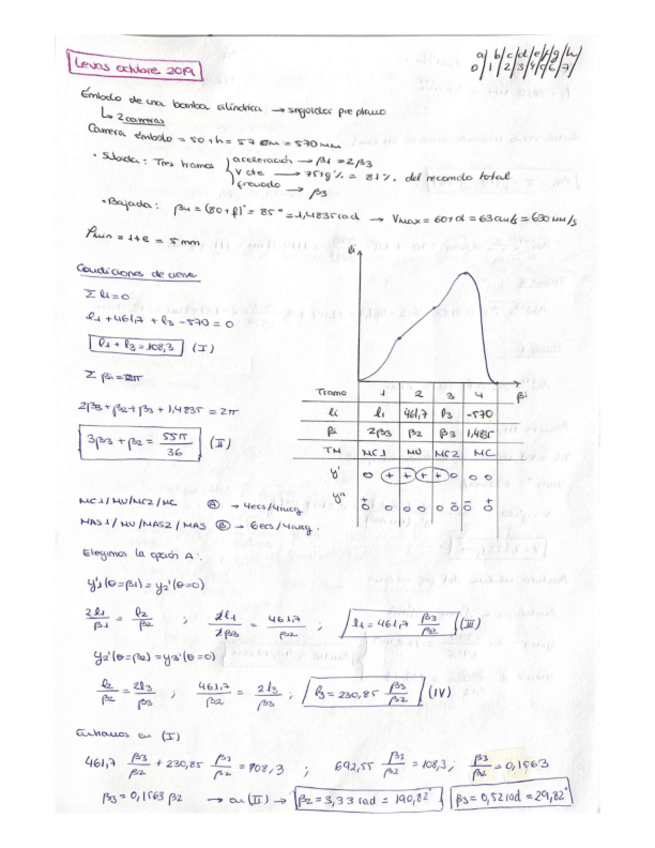 Levas octubre 2019
a/ b/ c/ d/ e/ f/ g/ h/
0/ 1/ 2/ 3/ 4/ 5/ 6/ 7/
Émbolo de una bomba cilíndrica → seguidor pie plano
↳ 2 carreras
Carrera émbolo = 50+h = 57 cm = 570 mm
• Subida: Tres tramos
aceleración → β1 = 2β3
V cte → 75+g % = 81 % del recorrido total
frenado → β3
• Bajada: β4 = (80+f)° = 85° = 1,4835 rad → Vmax = 60+d = 63 cm/s = 630 mm/s
ρmin = 1+e = 5 mm
Condiciones de cierre
Σ li = 0
l1 + 461,7 + l3 - 570 = 0
l1 + l3 = 108,3 (I)
Σ βi = 2π
2β3 + β2 + β3 + 1,4835 = 2π
3β3 + β2 = 55π/36 (II)
li
βi
Tramo 1 2 3 4
li l1 461,7 l3 -570
βi 2β3 β2 β3 1,4835
TM MC1 MU MC2 MC
y' 0 + + + + 0 0 0
y'' +0 0 0 0 0 -0 -0 +0
MC1/MU/MC2/MC Ⓐ → 4ecs/4incg
MAS1/MU/MAS2/MAS Ⓑ → 6ecs/4incg.
Elegimos la opción A:
y'1(θ=β1) = y2'(θ=0)
2l1/β1 = l2/β2 ; 2l1/2β3 = 461,7/β2 ; l1 = 461,7 β3/β2 (III)
y2'(θ=β2) = y3'(θ=0)
l2/β2 = 2l3/β3 ; 461,7/β2 = 2l3/β3 ; l3 = 230,85 β3/β2 (IV)
Entramos en (I)
461,7 β3/β2 + 230,85 β3/β2 = 108,3 ; 692,55 β3/β2 = 108,3 ; β3/β2 = 0,1563
β3 = 0,1563 β2 → en (II) → β2 = 3,33 rad = 190,82° β3 = 0,52 rad = 29,82°